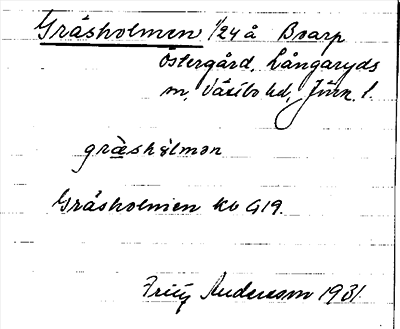 Gräsholmen 1/24 å Boarp
Östergård, Långaryds
m, Västbo hd, Jönk. l.
græ̀shɵlmən
Gräsholmen kv G19.
Fritz Andersson 1931